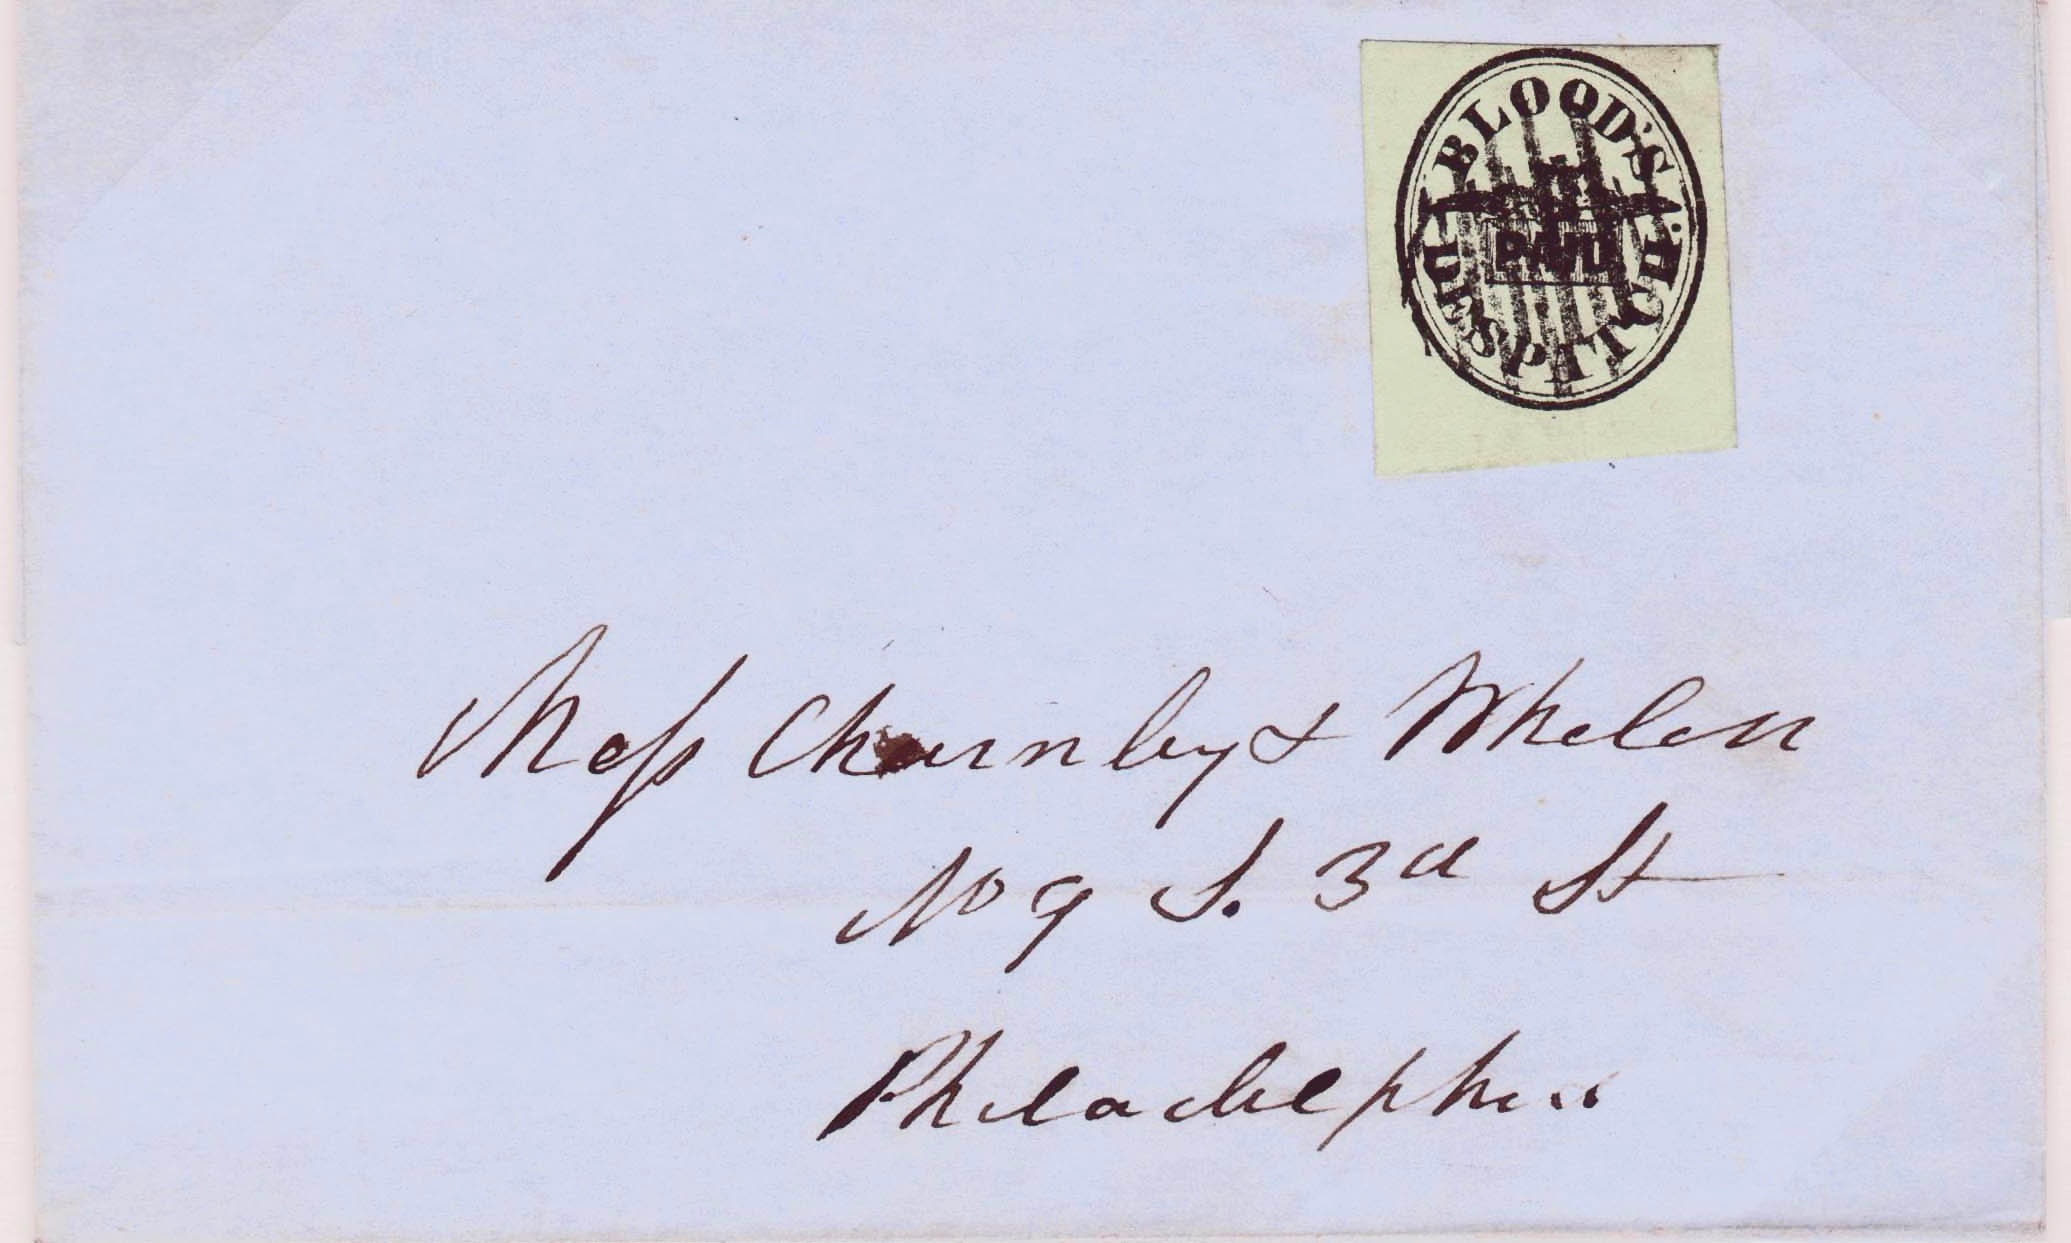 BLOOD'S D. DESPATCH
PAID
Mess Charnley & Whelen
No 9 S. 3d St
Philadelphia